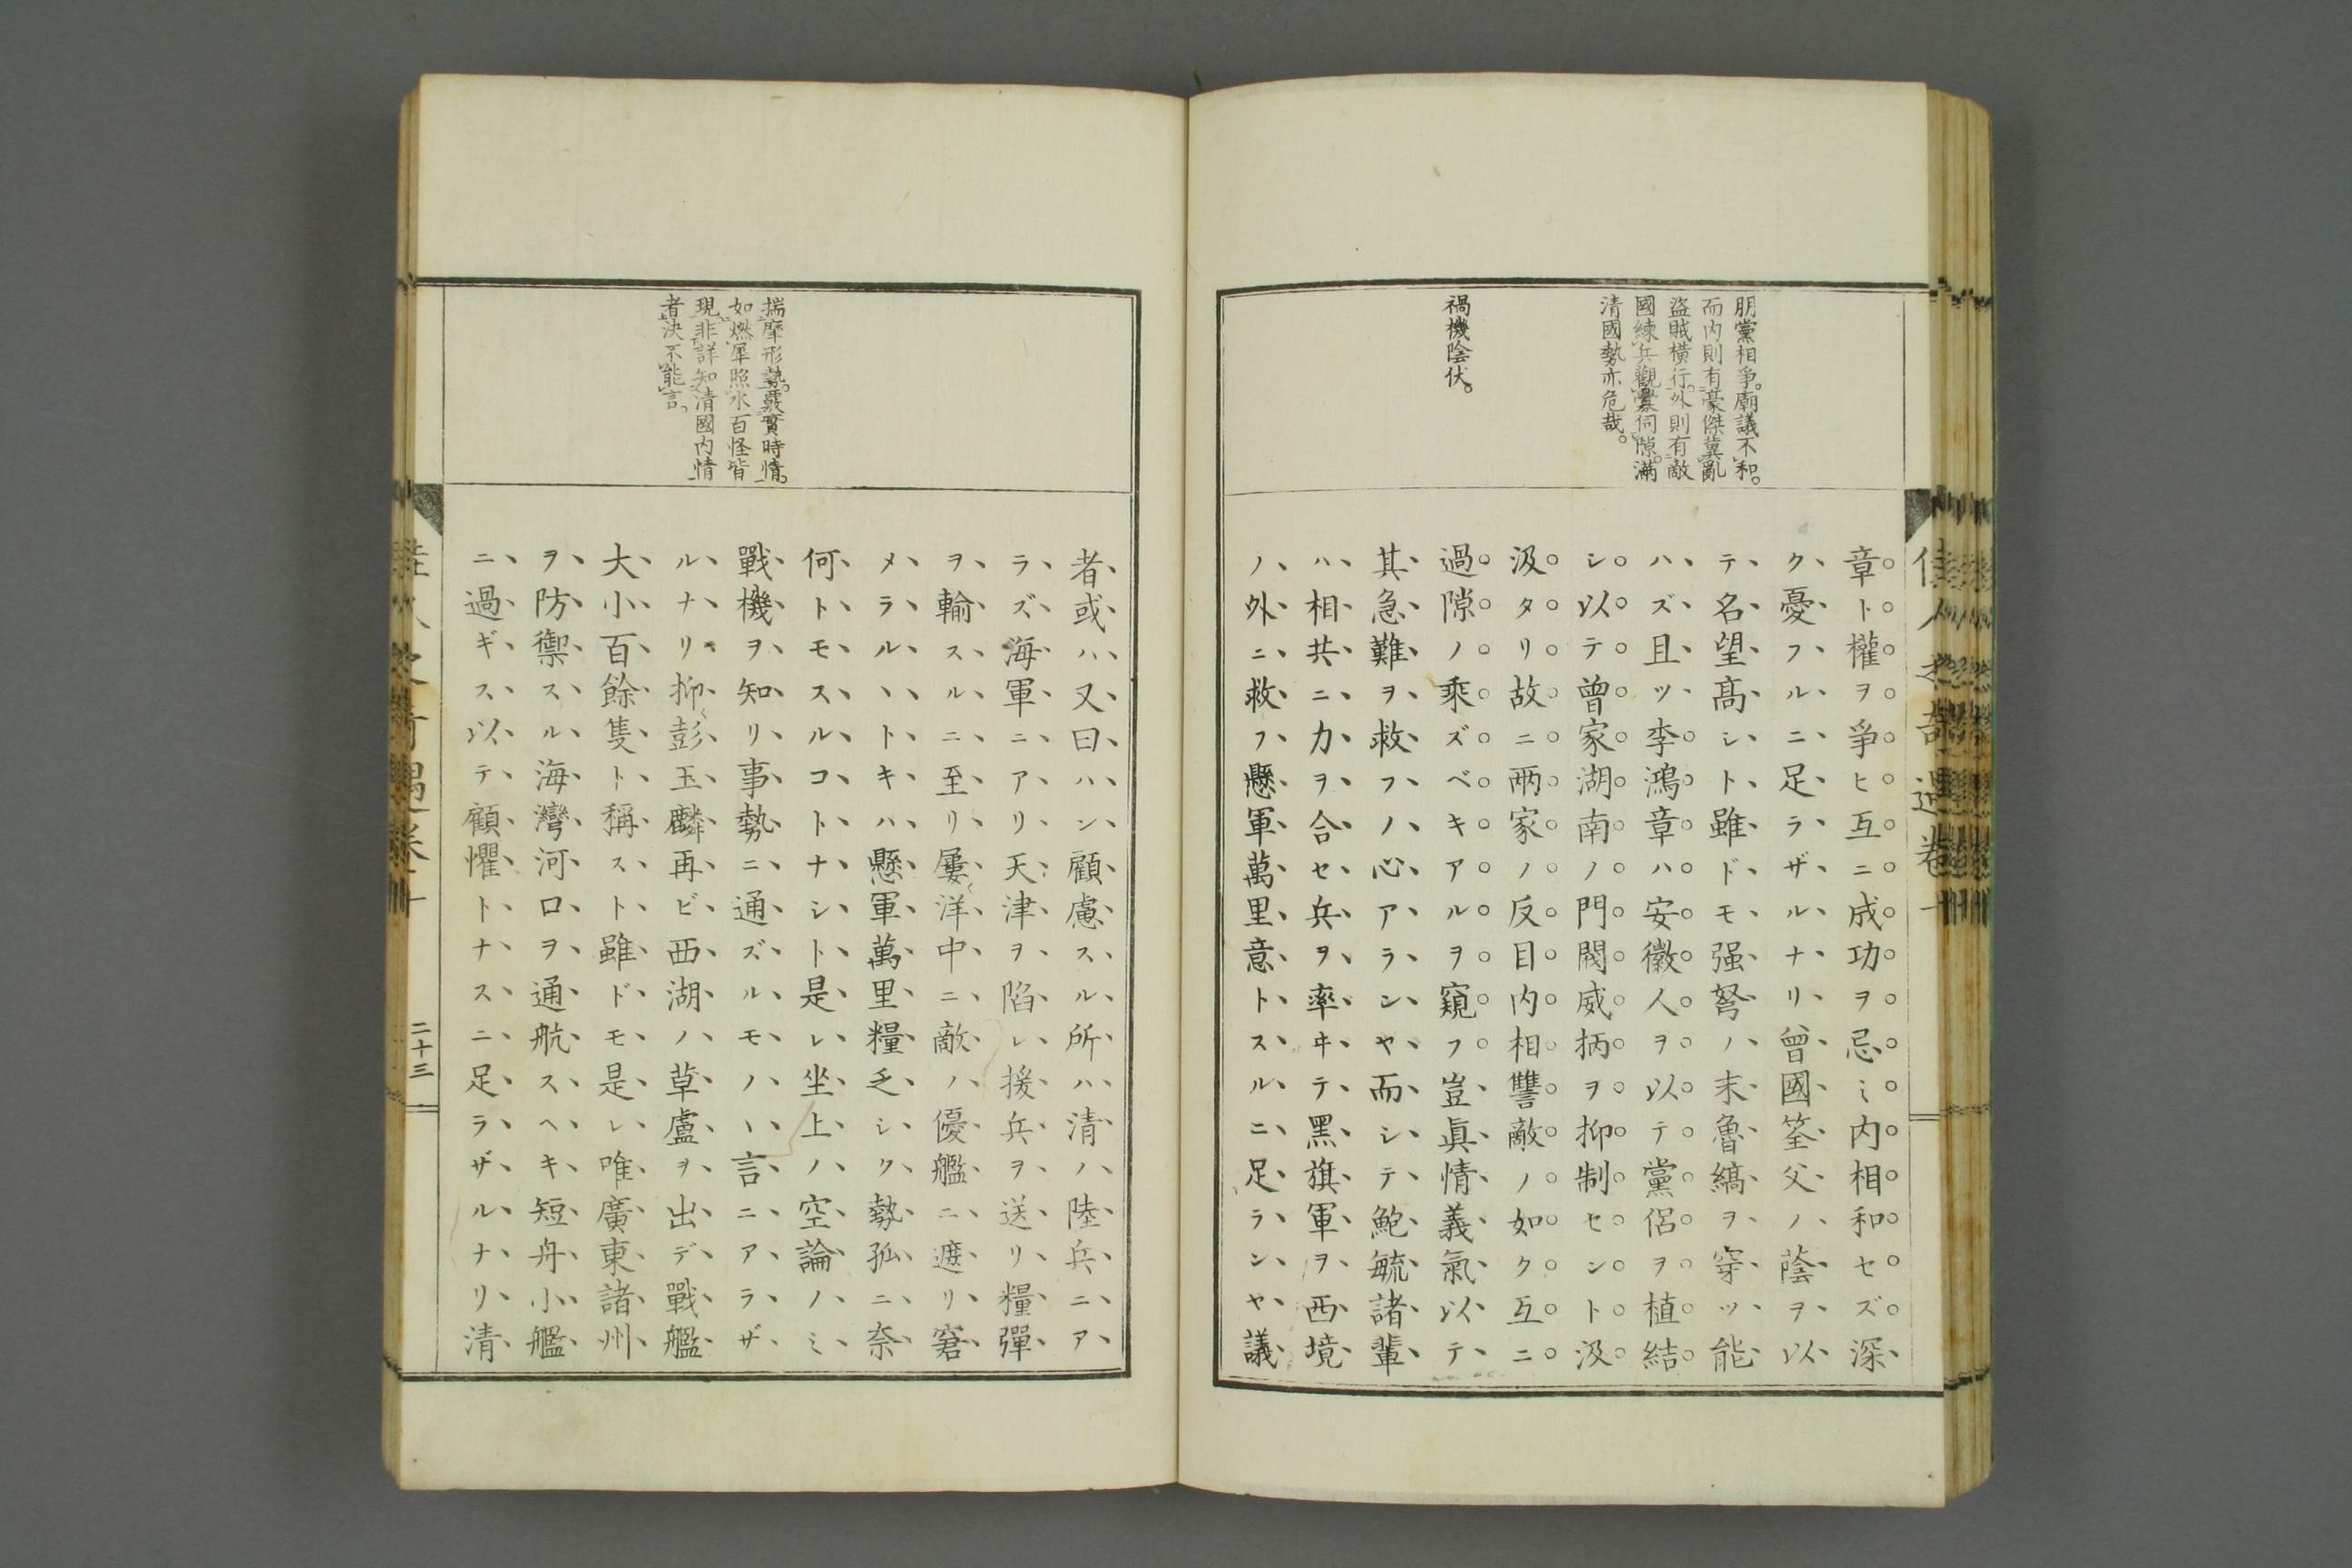 朋黨相爭。廟議不和。
而內則有豪傑冀亂
盜賊橫行。外則有敵
國練兵觀釁伺隙。滿
清國勢亦危哉。
禍機陰伏。
佳人之奇遇卷十
章ト權ヲ爭ヒ互ニ成功ヲ忌ミ内相和セズ深
ク憂フルニ足ラザルナリ曾國筌父ノ蔭ヲ以
テ名望高シト雖ドモ强弩ノ末魯縞ヲ穿ツ能
ハズ且ツ李鴻章ハ安徽人ヲ以テ黨侶ヲ植結
シ以テ曾家湖南ノ門閥威柄ヲ抑制セント汲
汲タリ故ニ兩家ノ反目内相讐敵ノ如ク互ニ
過隙ノ乘ズベキアルヲ窺フ豈眞情義氣以テ
其急難ヲ救フノ心アランヤ而シテ鮑毓諸輩
ハ相共ニ力ヲ合セ兵ヲ率ヰテ黑旗軍ヲ西境
ノ外ニ救フ懸軍萬里意トスルニ足ランヤ議
揣摩形勢。覈實時情。
如燃犀照水百怪皆
現非詳知清國内情
者決不能言。
者或ハ又曰ハン顧慮スル所ハ清ノ陸兵ニア
ラズ海軍ニアリ天津ヲ陷レ援兵ヲ送リ糧彈
ヲ輸スルニ至リ屢〻洋中ニ敵ノ優艦ニ遮リ窘
メラルヽトキハ懸軍萬里糧乏シク勢孤ニ奈
何トモスルコトナシト是レ坐上ノ空論ノミ
戰機ヲ知リ事勢ニ通ズルモノヽ言ニアラザ
ルナリ抑〻彭玉麟再ビ西湖ノ草盧ヲ出デ戰艦
大小百餘隻ト稱スト雖ドモ是レ唯廣東諸州
ヲ防禦スル海灣河口ヲ通航スヘキ短舟小艦
ニ過ギス以テ顧懼トナスニ足ラザルナリ清
二十三